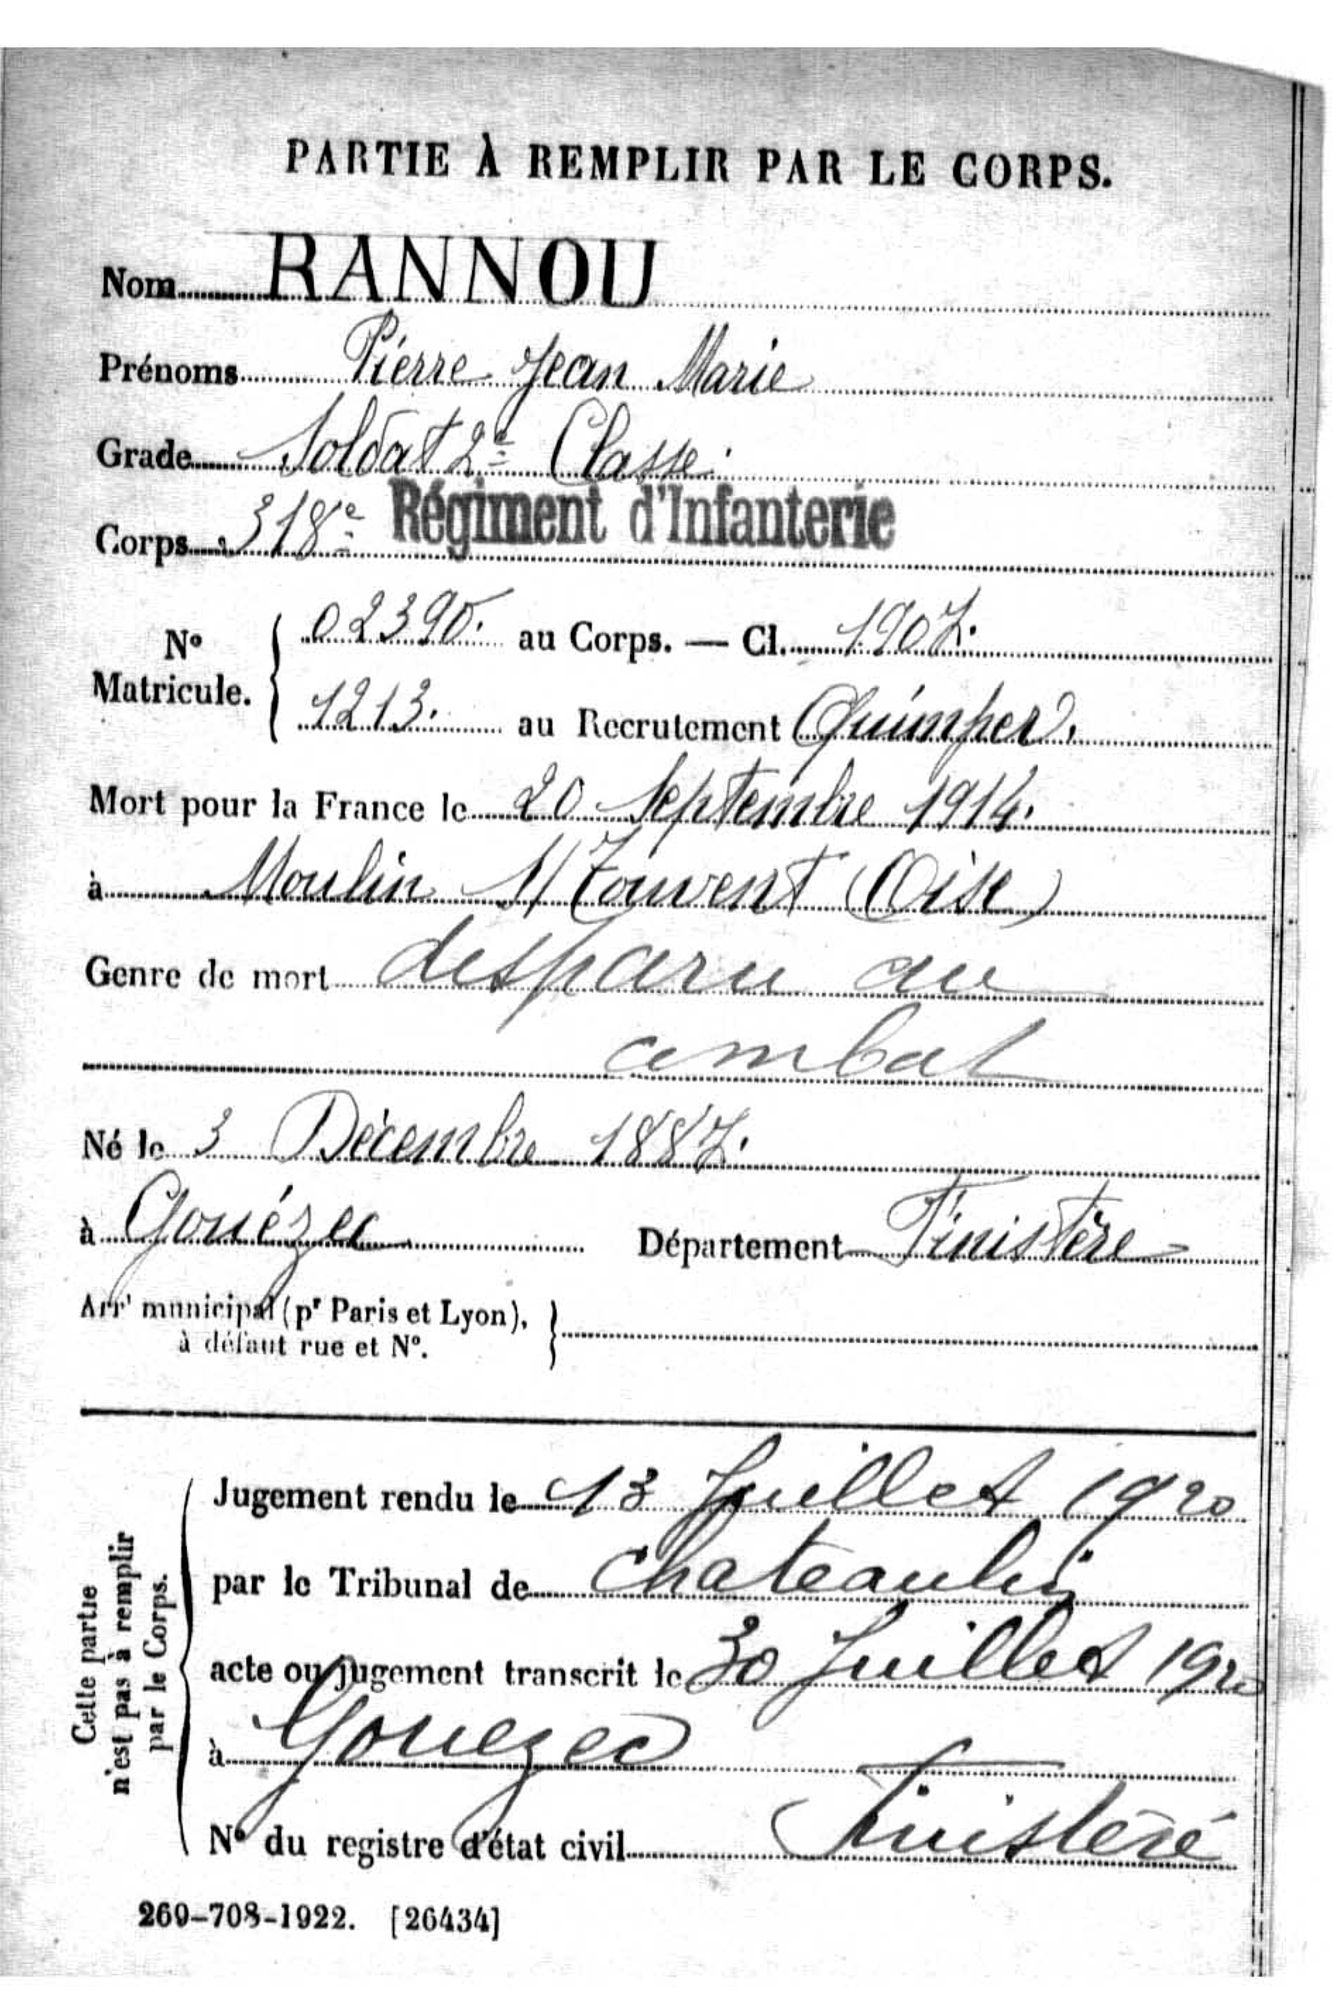 PARTIE À REMPLIR PAR LE CORPS.
Nom RANNOU
Prénoms Pierre Jean Marie
Grade Soldat 2e Classe.
Corps 318e Régiment d'Infanterie
No Matricule. { 02390. au Corps. — Cl. 1907.
1213. au Recrutement Quimper.
Mort pour la France le 20 Septembre 1914.
à Moulin s/ Touvent (Oise)
Genre de mort disparu au
combat
Né le 3 Décembre 1887.
à Gouézec Département Finistère
Arrt municipal (pr Paris et Lyon),
à défaut rue et No.
Cette partie
n'est pas à remplir
par le Corps.
Jugement rendu le 13 Juillet 1920
par le Tribunal de Chateaulin
acte ou jugement transcrit le 30 Juillet 1920
à Gouezec
No du registre d'état civil Finistère
269-708-1922. [26434]